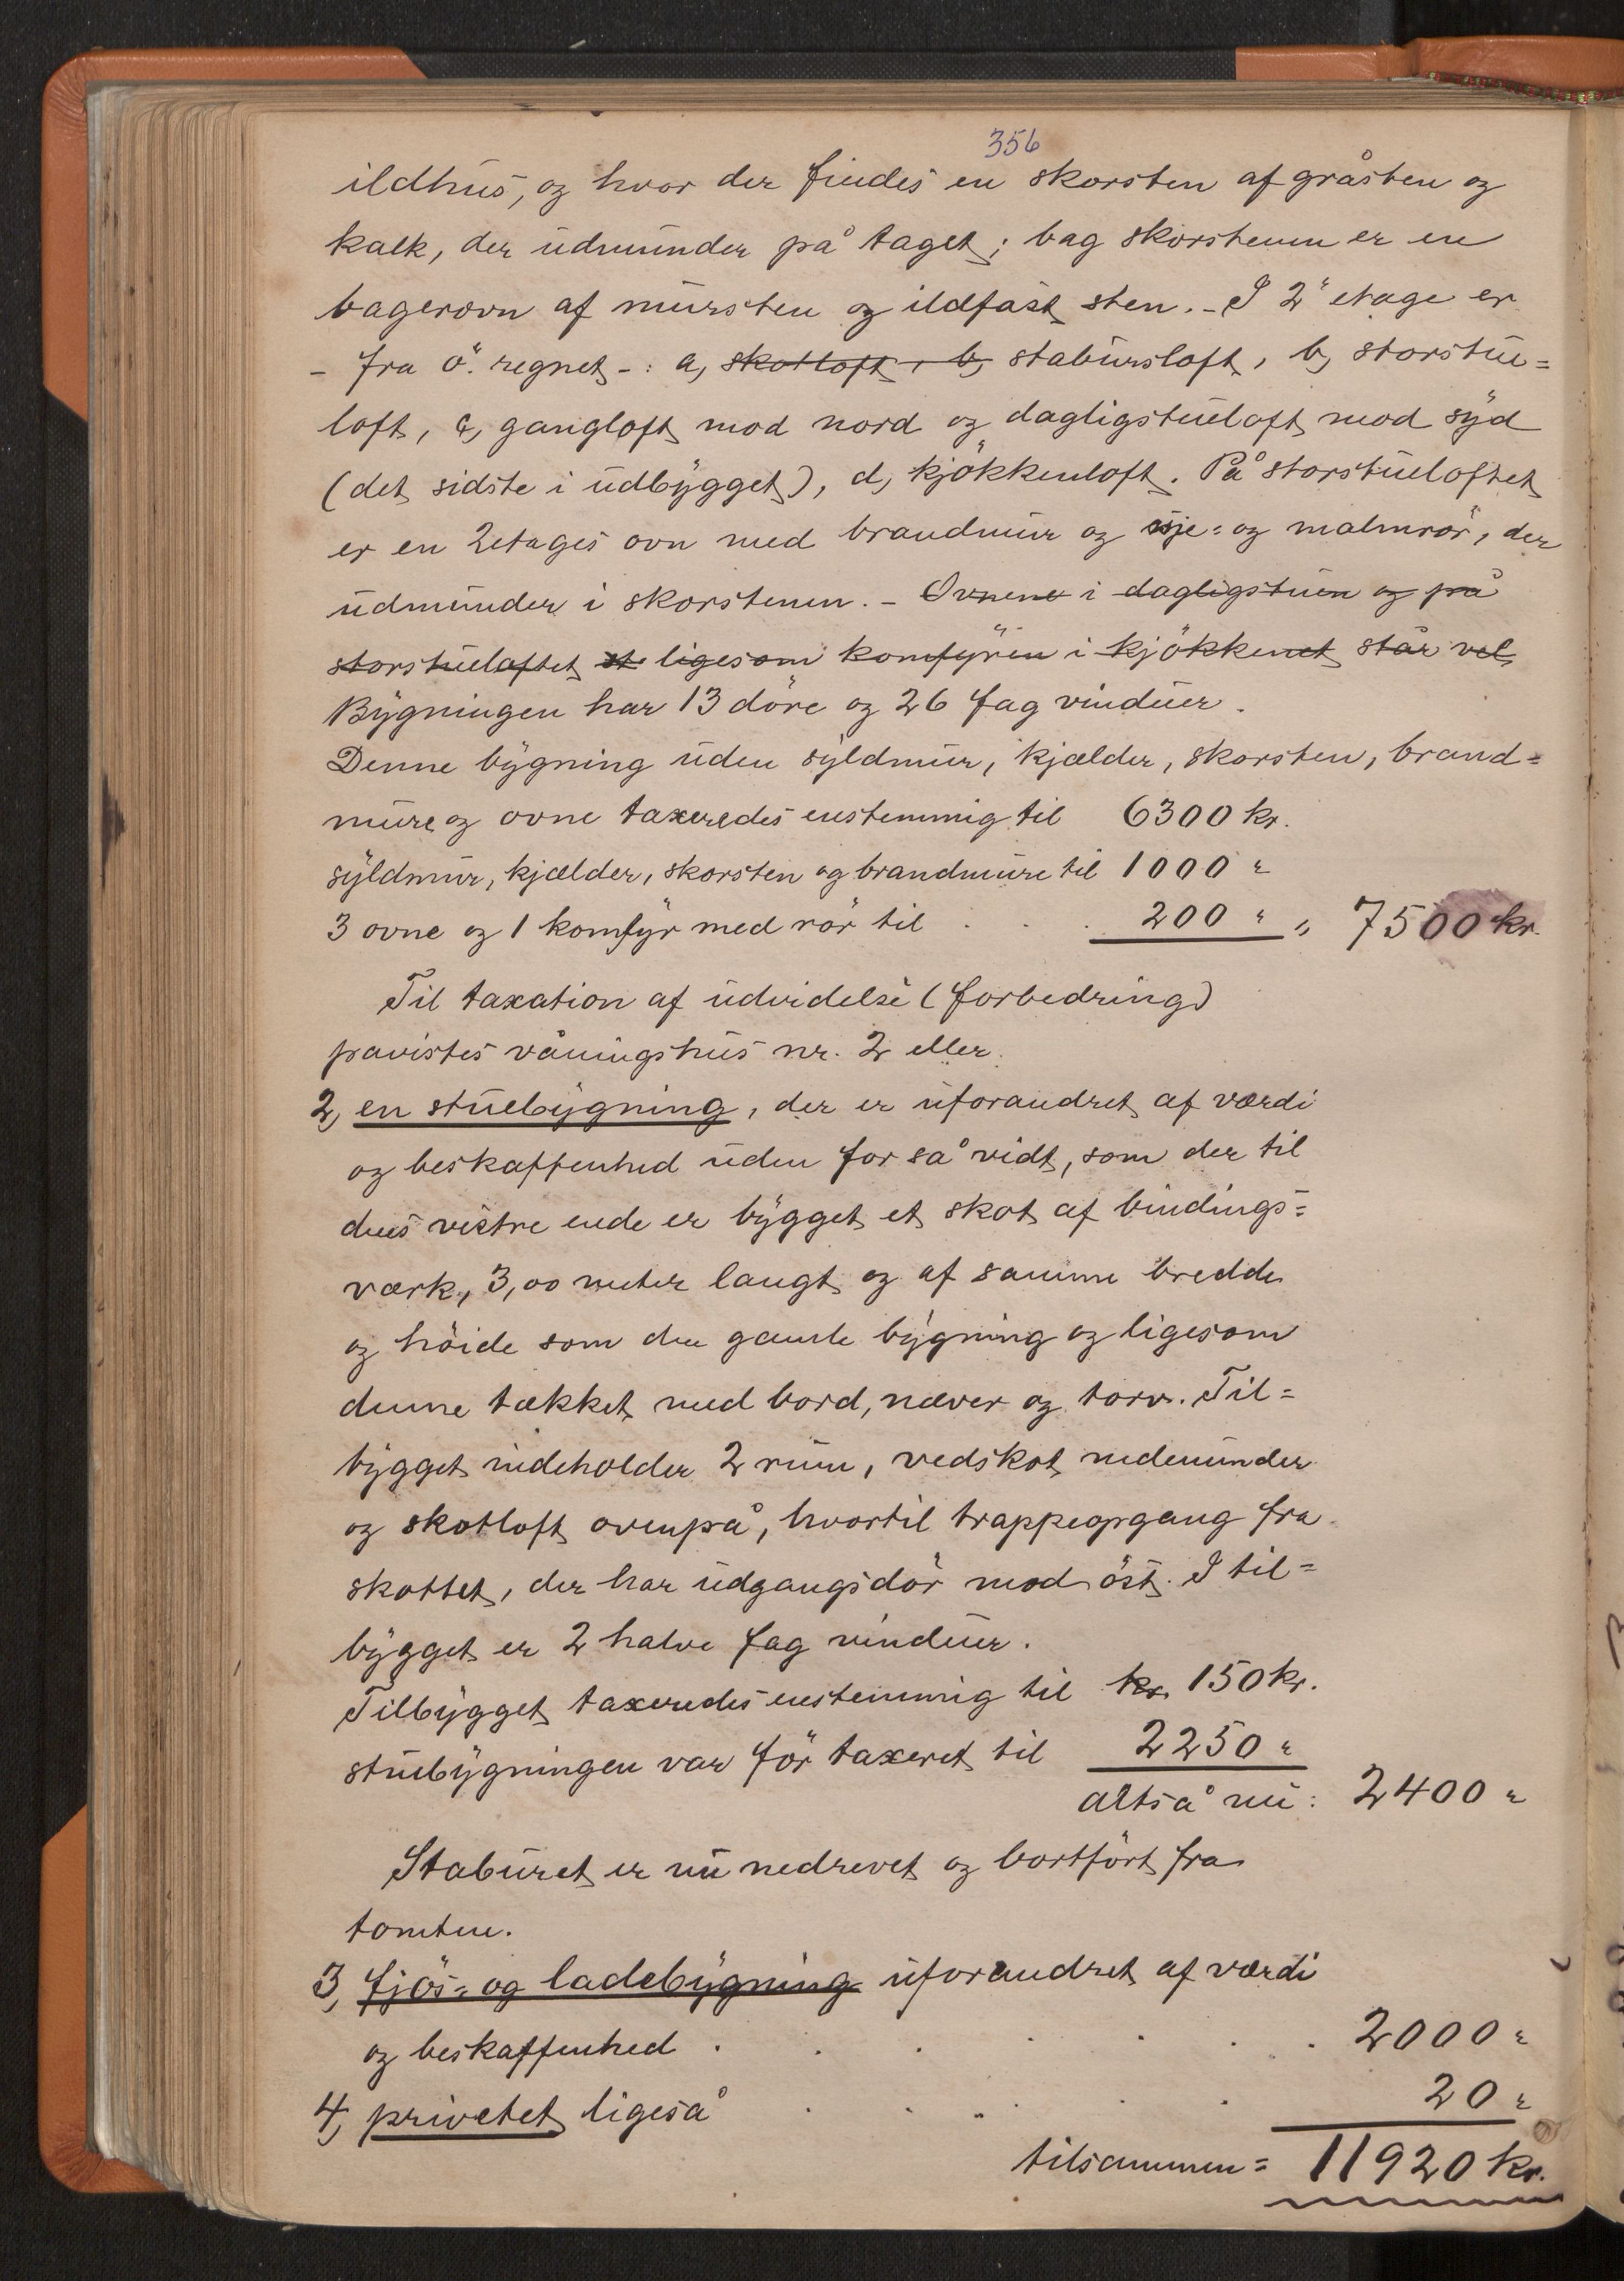 356
ildhus, og hvor der findes en skorsten af gråsten og
kalk, der udmunder på taget; bag skorstenen er en
bagerovn af mursten og ildfast sten. - I 2' etage er
- fra ö. regnet -: a, skotloft, b, stabursloft, b, storstue=
loft, c, gangloft mod nord og dagligstueloft mod syd
(det sidste i udbygget), d, kjökkenloft. På storstueloftet
er en 2etages ovn med brandmur og sje= og malmrör, der
udmunder i skorstenen. - Ovnene i dagligstuen og på
storstueloftet st ligesom komfyren i kjökkenet står vel
Bygningen har 13 döre og 26 fag vinduer.
Denne bygning uden syldmur, kjælder, skorsten, brand=
mure og ovne taxeredes enstemmig til 6300 kr.
syldmur, kjælder, skorsten og brandmure til 1000 "
3 ovne og 1 komfyr med rör til . . . 200 " " 7500 kr.
Til taxation af udvidelse (forbedring)
pavistes våningshus nr. 2 eller
2, en stuebygning, der er uforandret af værdi
og beskaffenhed uden for så vidt, som der til
dens vestre ende er bygget et skot af bindings=
værk, 3,00 meter langt og af samme bredde
og höide som den gamle bygning og ligesom
denne tækket med bord, næver og torv. Til=
bygget indeholder 2 rum, vedskot nedenunder
og skotloft ovenpå, hvortil trappeopgang fra
skottet, der har udgangsdör mod öst. I til=
bygget er 2 halve fag vinduer.
Tilbygget taxeredes enstemmig til kr. 150 kr.
stuebygningen var för taxeret til 2250 "
altså nu: 2400 "
Staburet er nu nedrevet og bortfört fra
tomten.
3, fjös= og ladebygning uforandret af værdi
og beskaffenhed . . . . . . 2000 "
4, privetet ligeså . . . . . 20 "
tilsammen = 11920 kr.